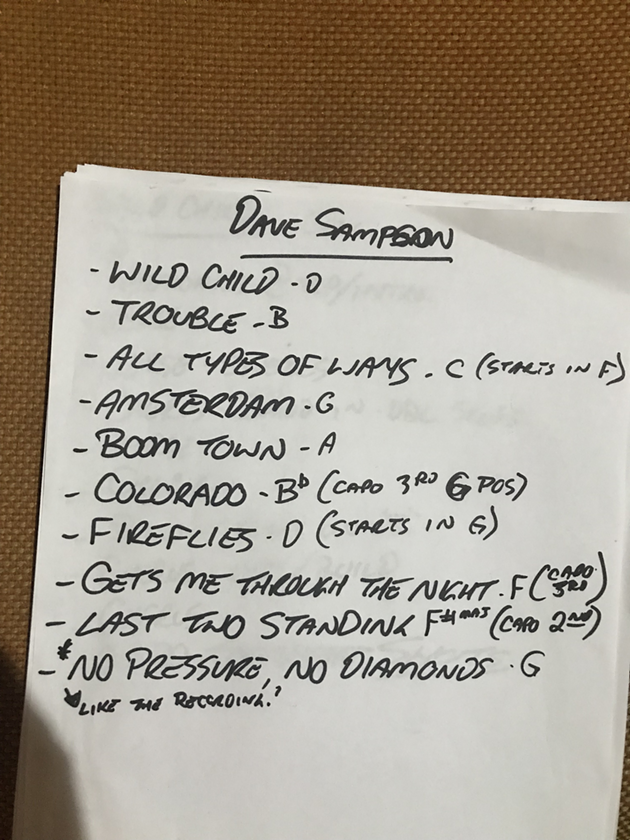 DAVE SAMPSON
- WILD CHILD - D
- TROUBLE - B
- ALL TYPES OF WAYS - C (STARTS IN F)
- AMSTERDAM - G
- BOOM TOWN - A
- COLORADO - Bb (CAPO 3RD G POS)
- FIREFLIES - D (STARTS IN G)
- GETS ME THROUGH THE NIGHT - F (CAPO 3RD)
- LAST TWO STANDING F# MAJ (CAPO 2ND)
- *NO PRESSURE, NO DIAMONDS - G
LIKE THE RECORDING?